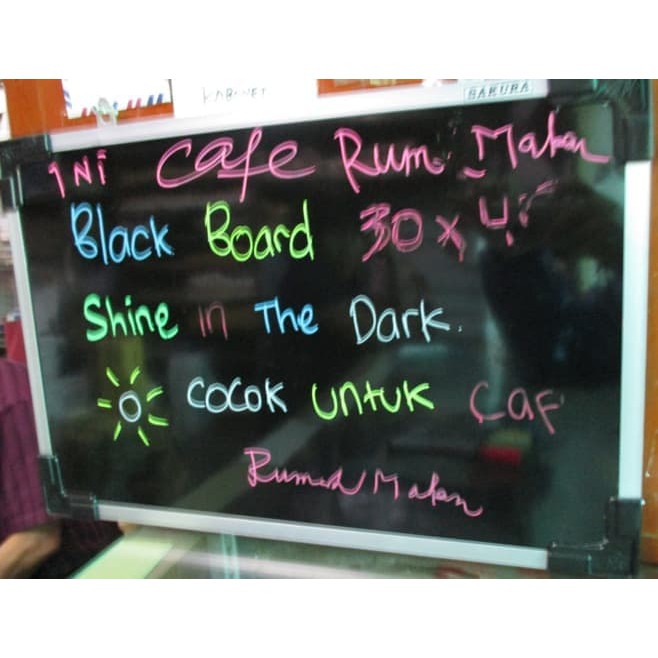 KABINET
SAKURA
INi cafe Rum. Makan
Black Board 30 x 4
Shine in The Dark.
COCOK UNTUK CAF
Rumah Makan